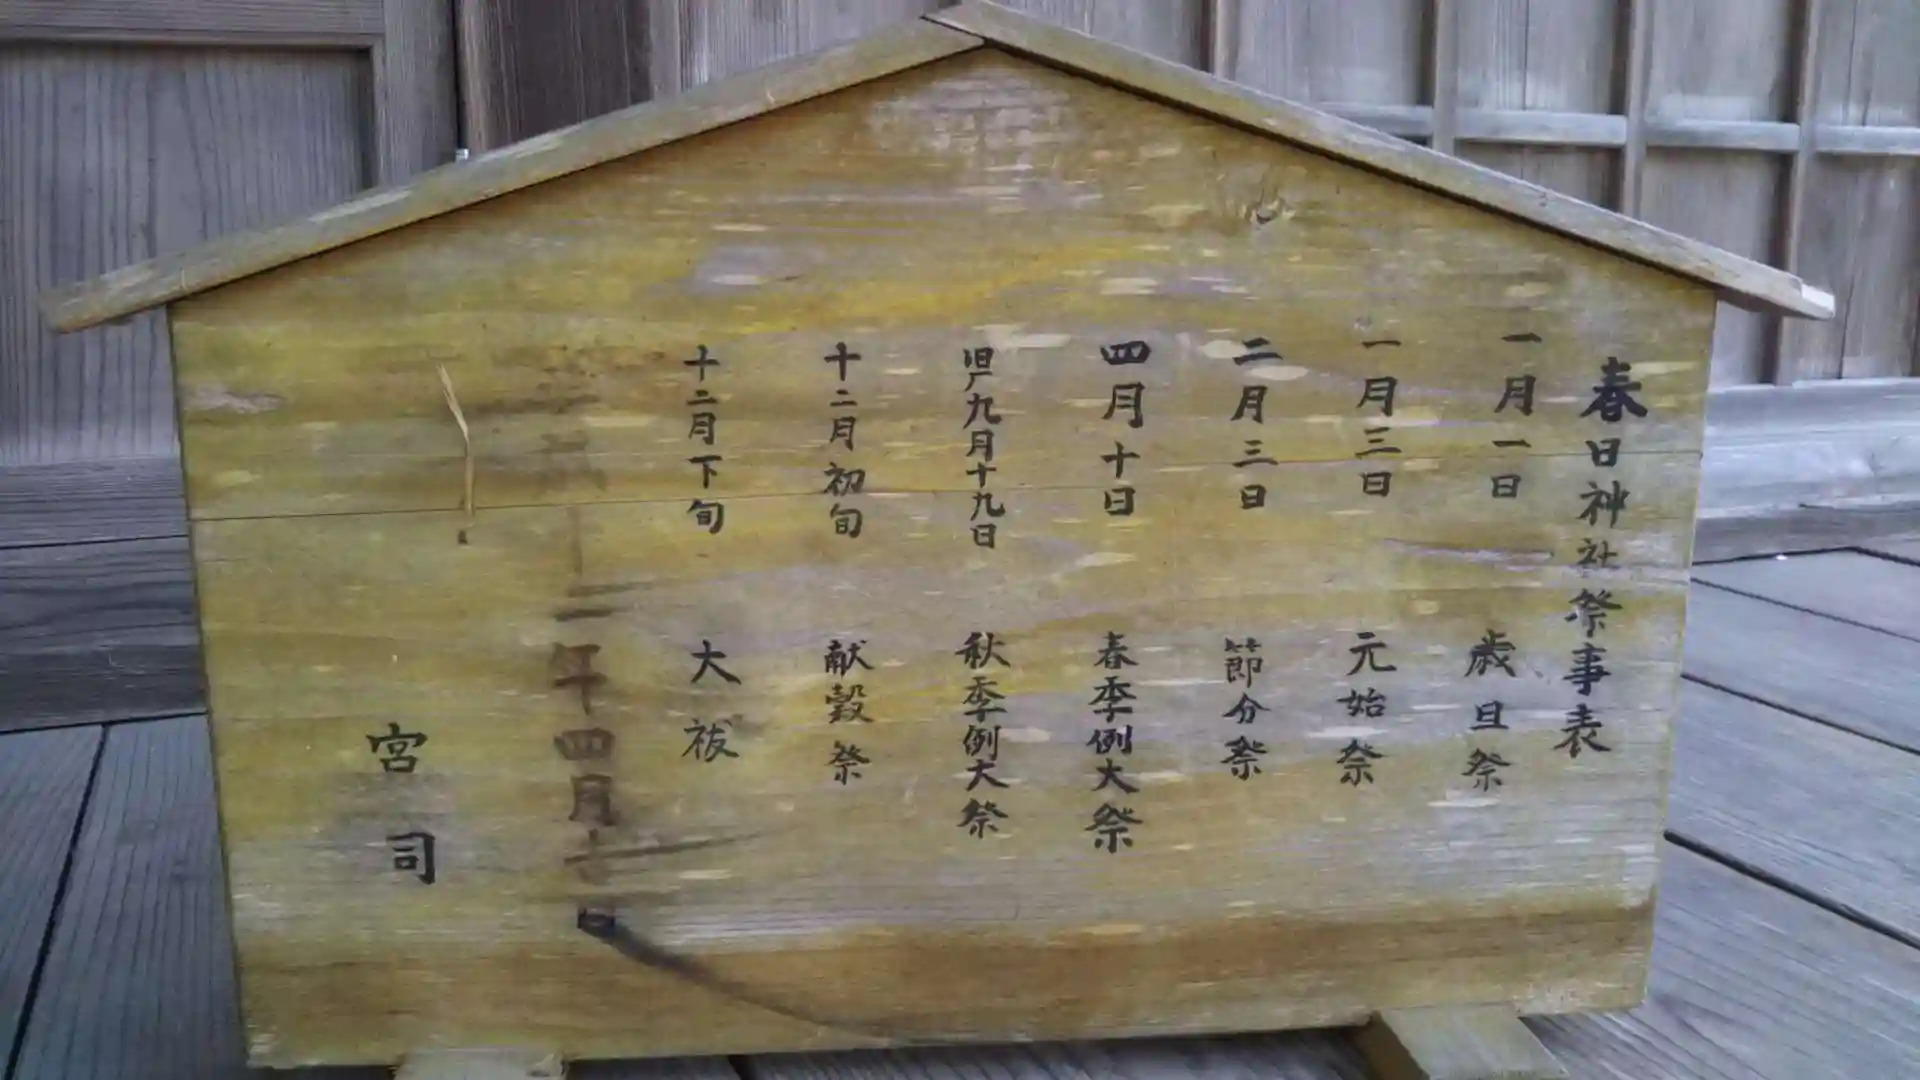 春日神社祭事表
一月一日 歳旦祭
一月三日 元始祭
二月三日 節分祭
四月十日 春季例大祭
旧九月十九日 秋季例大祭
十二月初旬 献穀祭
十二月下旬 大祓
年四月
宮司